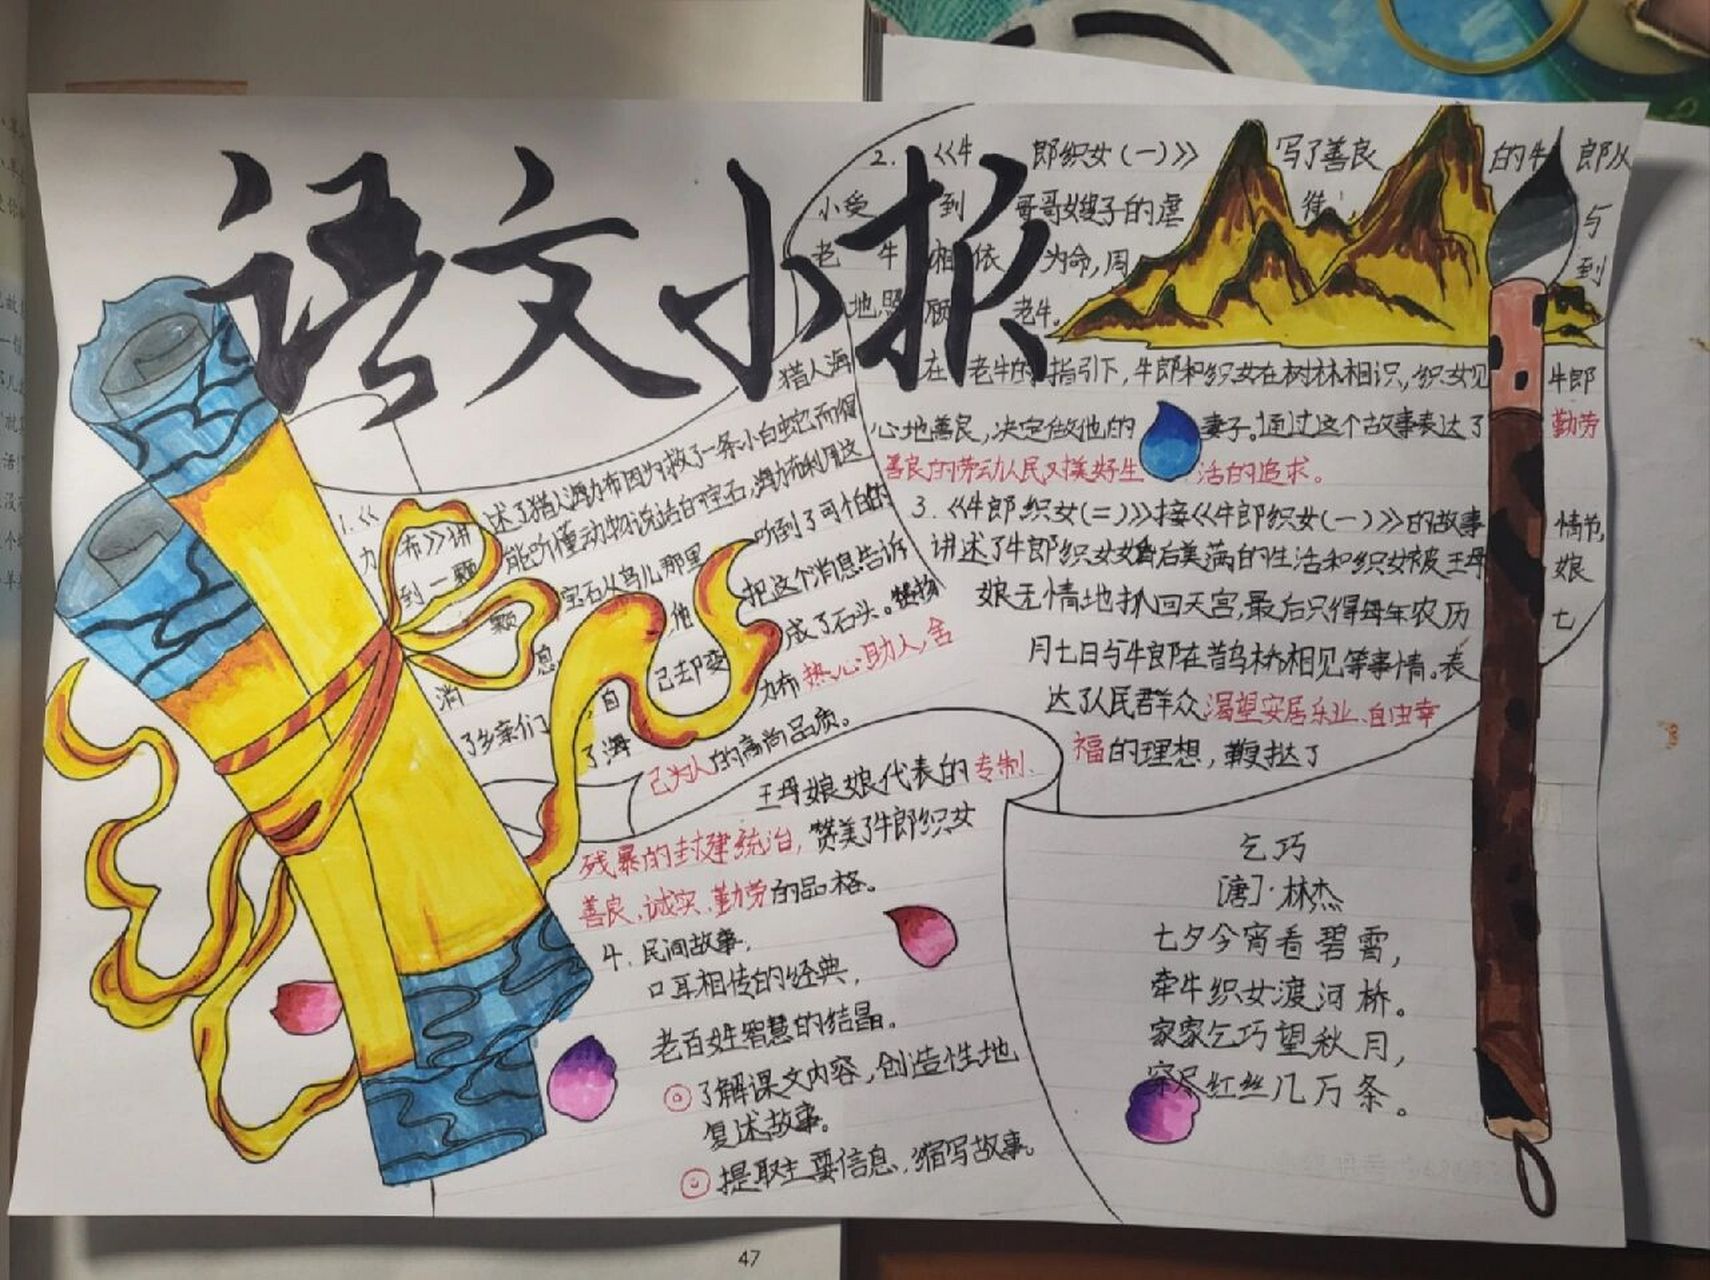 语文小报
1.《猎人海
力布》讲述了猎人海力布因为救了一条小白蛇而得
到一颗能听懂动物说话的宝石,海力布利用这
颗宝石从鸟儿那里听到了可怕的
消息,他把这个消息告诉
了乡亲们,自己却变成了石头。赞扬
了海力布热心助人,舍
己为人的高尚品质。
2.《牛郎织女(一)》写了善良的牛郎从
小受到哥哥嫂子的虐待,与
老牛相依为命,周到
地照顾老牛。
在老牛的指引下,牛郎和织女在树林相识,织女见牛郎
心地善良,决定做他的妻子。通过这个故事表达了勤劳
善良的劳动人民对美好生活的追求。
3.《牛郎织女(二)》接《牛郎织女(一)》的故事情节,
讲述了牛郎织女婚后美满的生活和织女被王母娘
娘无情地抓回天宫,最后只得每年农历七
月七日与牛郎在鹊桥相见等事情。表
达了人民群众渴望安居乐业、自由幸
福的理想,鞭挞了
王母娘娘代表的专制、
残暴的封建统治,赞美了牛郎织女
善良、诚实、勤劳的品格。
4.民间故事,
口耳相传的经典,
老百姓智慧的结晶。
了解课文内容,创造性地
复述故事。
提取主要信息,缩写故事。
乞巧
[唐]·林杰
七夕今宵看碧霄,
牵牛织女渡河桥。
家家乞巧望秋月,
穿尽红丝几万条。
47